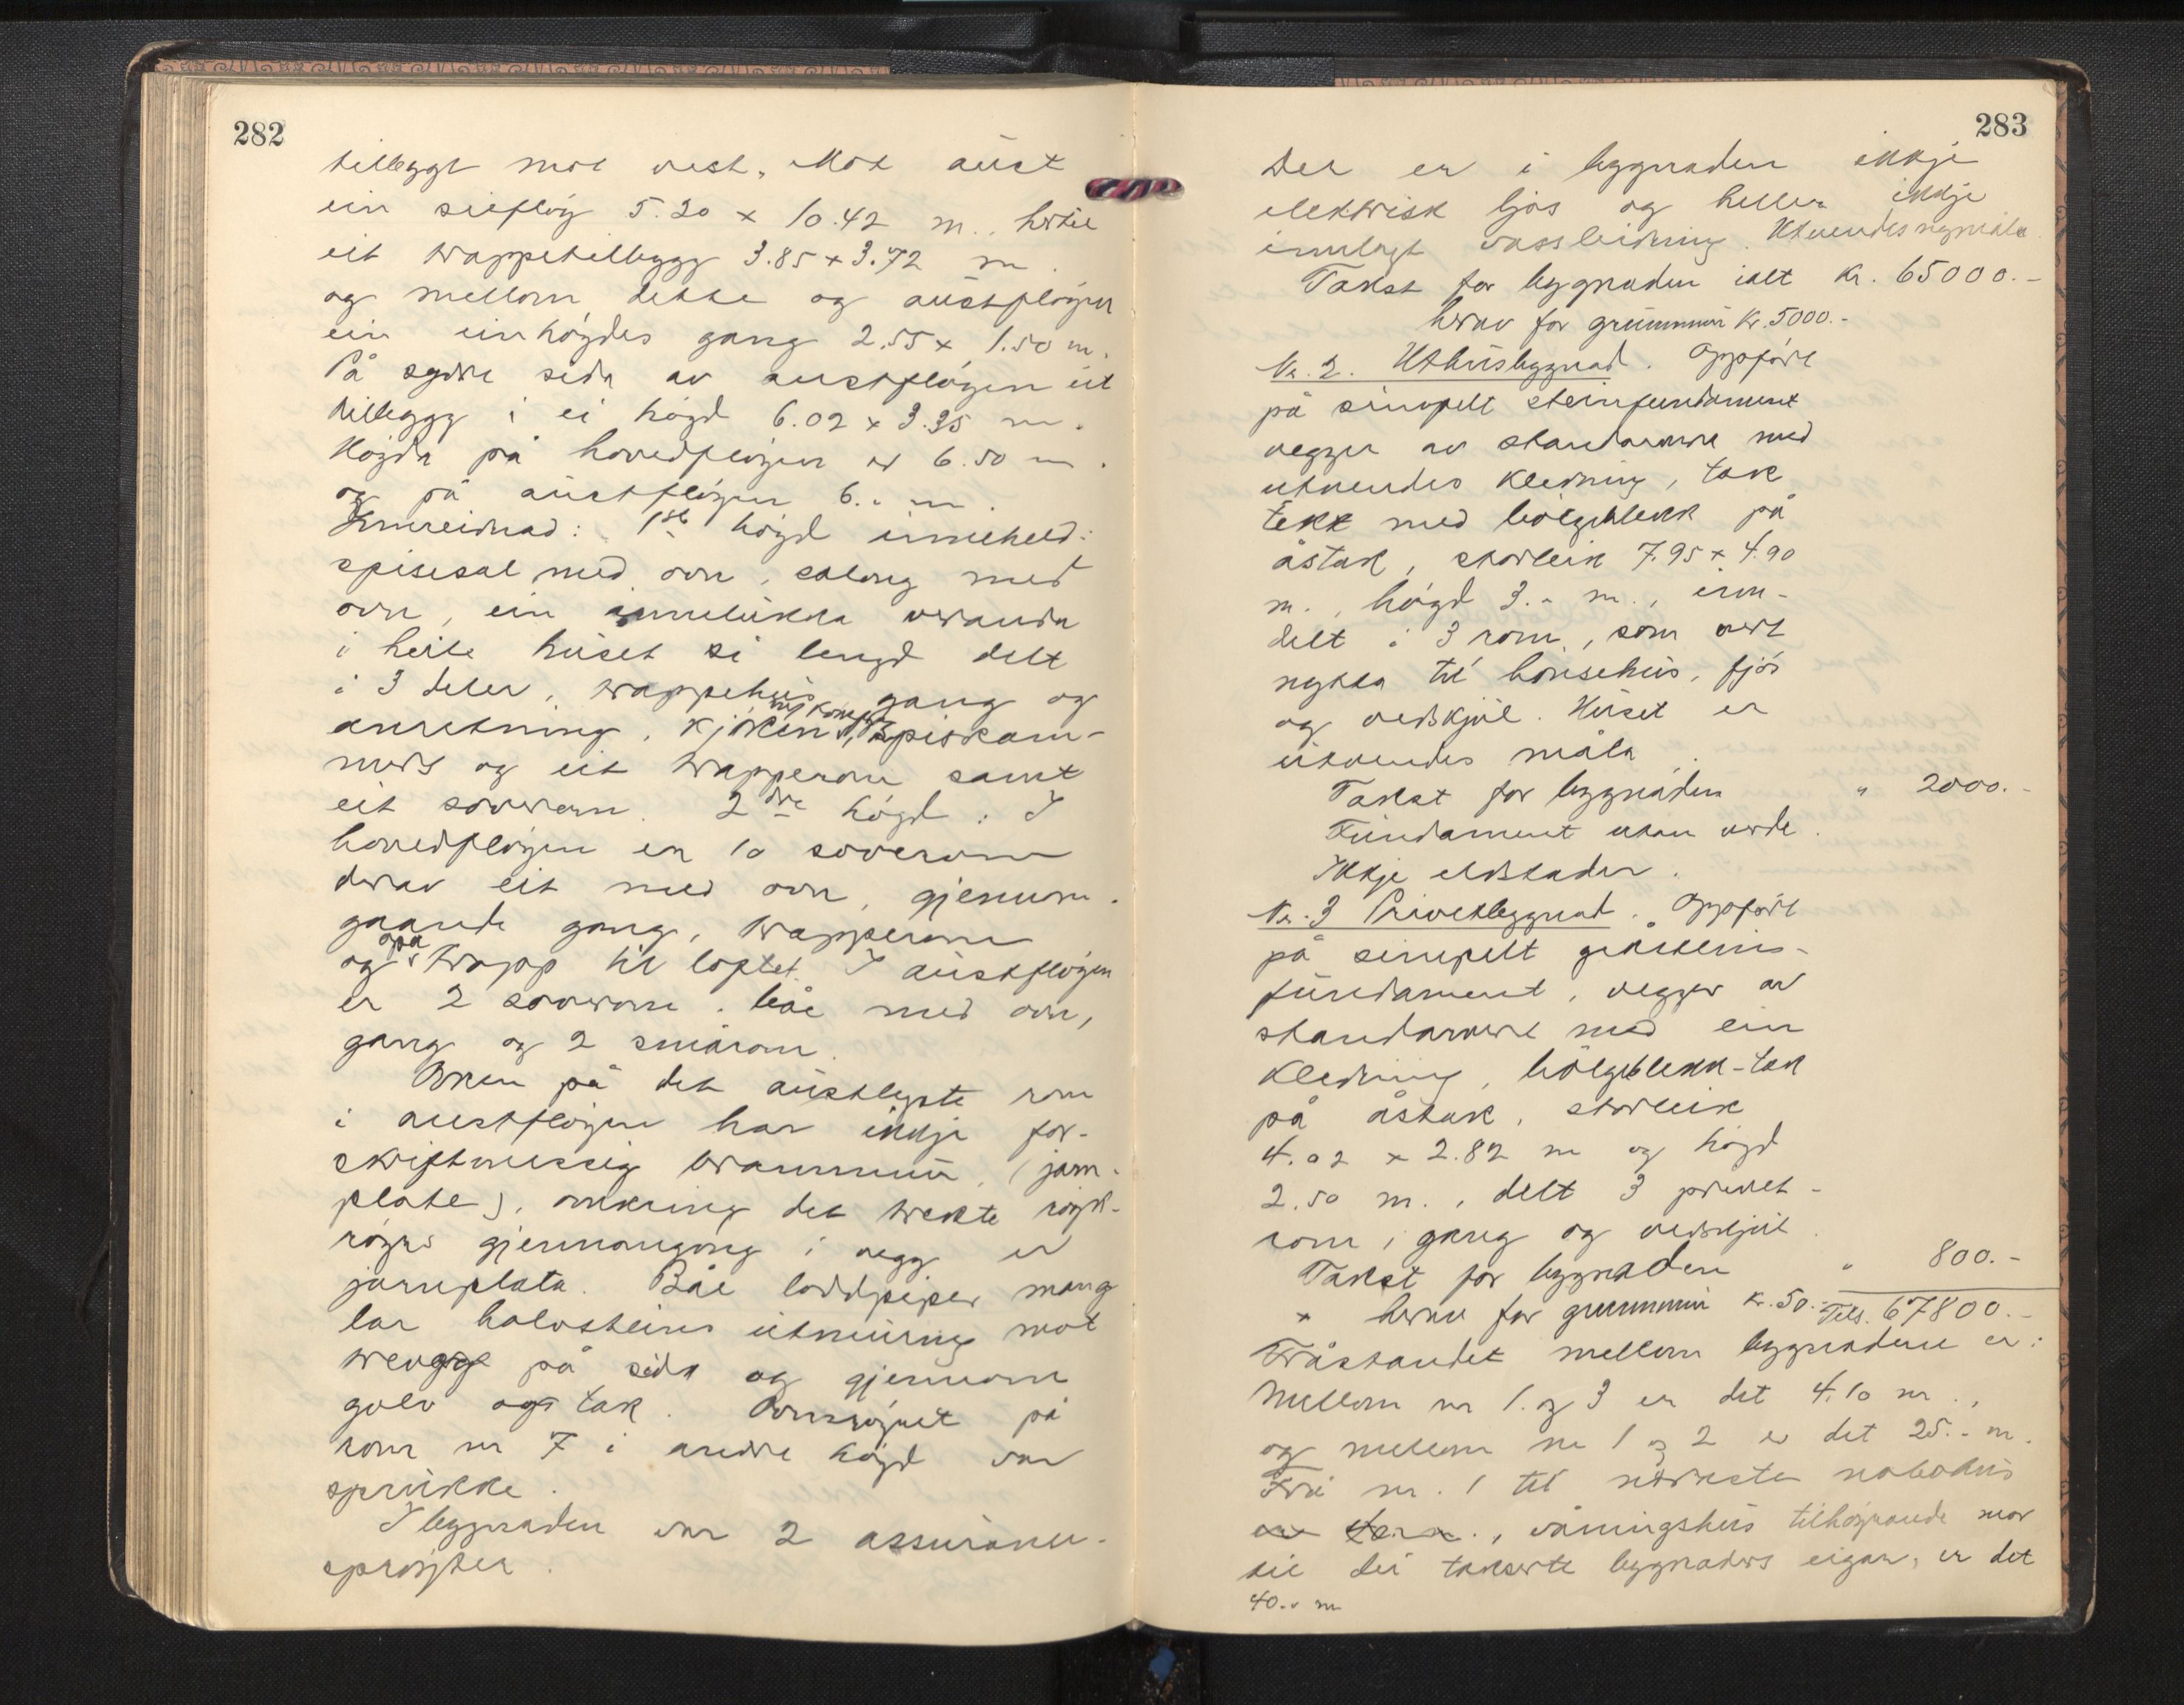 282
tillegge mot vest, Mot aust
ein sieflög 5.20 x 10.42 m., hertil
eit trappetillegg 3.85 x 3.72 m.
og mellom dette og austflögen
ein einhögdes gang 2.55 x 1.50 m.
På sydre sida av austflögen eit
tillegg i ei högd 6.02 x 3.35 m.
Högda på hovedflögen er 6.50 m.
og på austflögen 6.- m.
Innreidnad: 1ste högd inneheld:
spisesal med ovn, salong med
ovn, ein innelukka veranda
i heile huset si lengd delt
i 3 deler, trappehus, gang og
anretning, kjöken m/komfyr, spiskam-
mers og eit trapperom samt
eit soverom. 2dre högd: I
hovedflögen er 10 soverom
derav eit med ovn, gjenom-
gaande gang, trapperom
og opa trapp til loftet. I austflögen
er 2 soverom, båe med ovn,
gang og 2 smårom.
Ovnen på det austlegste rom
i austflögen har ikkje for-
skriftmessig brannmur, (jarn-
plate), omkring det trekte röyk-
rörs gjennomgong i vegg er
jarnplata. Båe loddpiper mang
lar halvsteins utmuring mot
trevegg på sida og gjennom
golv og tak. Ovnsröyret på
rom nr 7 i andre högd var
sprukke.
I byggnaden var 2 assuranse-
spröyter.
283
Det er i byggnaden ikkje
elektrisk ljos og heller ikkje
innlagt vassleidning. Utvendes nymåla
Takst for bygnaden ialt Kr. 65000.-
herav for grunnmur Kr. 5000.-
Nr. 2. Uthusbyggnad. Oppfört
på simpelt steinfundament
vegger av standarverk med
utvendes kledning, tak
tekk med bölgeblekk på
åstak, storleik 7.95 x 4.90
m., högd 3.- m., inn-
delt i 3 rom, som vert
nytta til hönsehus, fjös
og vedskjul. Huset er
utvendes måla.
Takst for byggnaden " 2000.-
Fundament utan verde.
Ikkje eldstader.
Nr. 3 Privetbyggnad. Oppfört
på simpelt gråsteins-
fundament, vegger av
standarverk med ein
kledning, bölgeblekk-tak
på åstak, storleik
4.02 x 2.82 m og högd
2.50 m., delt 3 privet-
rom, gang og vedskjul.
Takst for byggnaden " 800.-
x herav for grunnmur Kr. 50.- Tils. 67800.-
Fråstandet mellom byggnadene er:
Mellom nr 1. og 3 er det 4.10 m.,
og mellom nr 1 og 2 er det 25.- m.
Frå nr. 1 til nærmeste nabohus
, våningshus tilhöyrande mor
til dei takserte bygnaders eigar, er det
40.- m